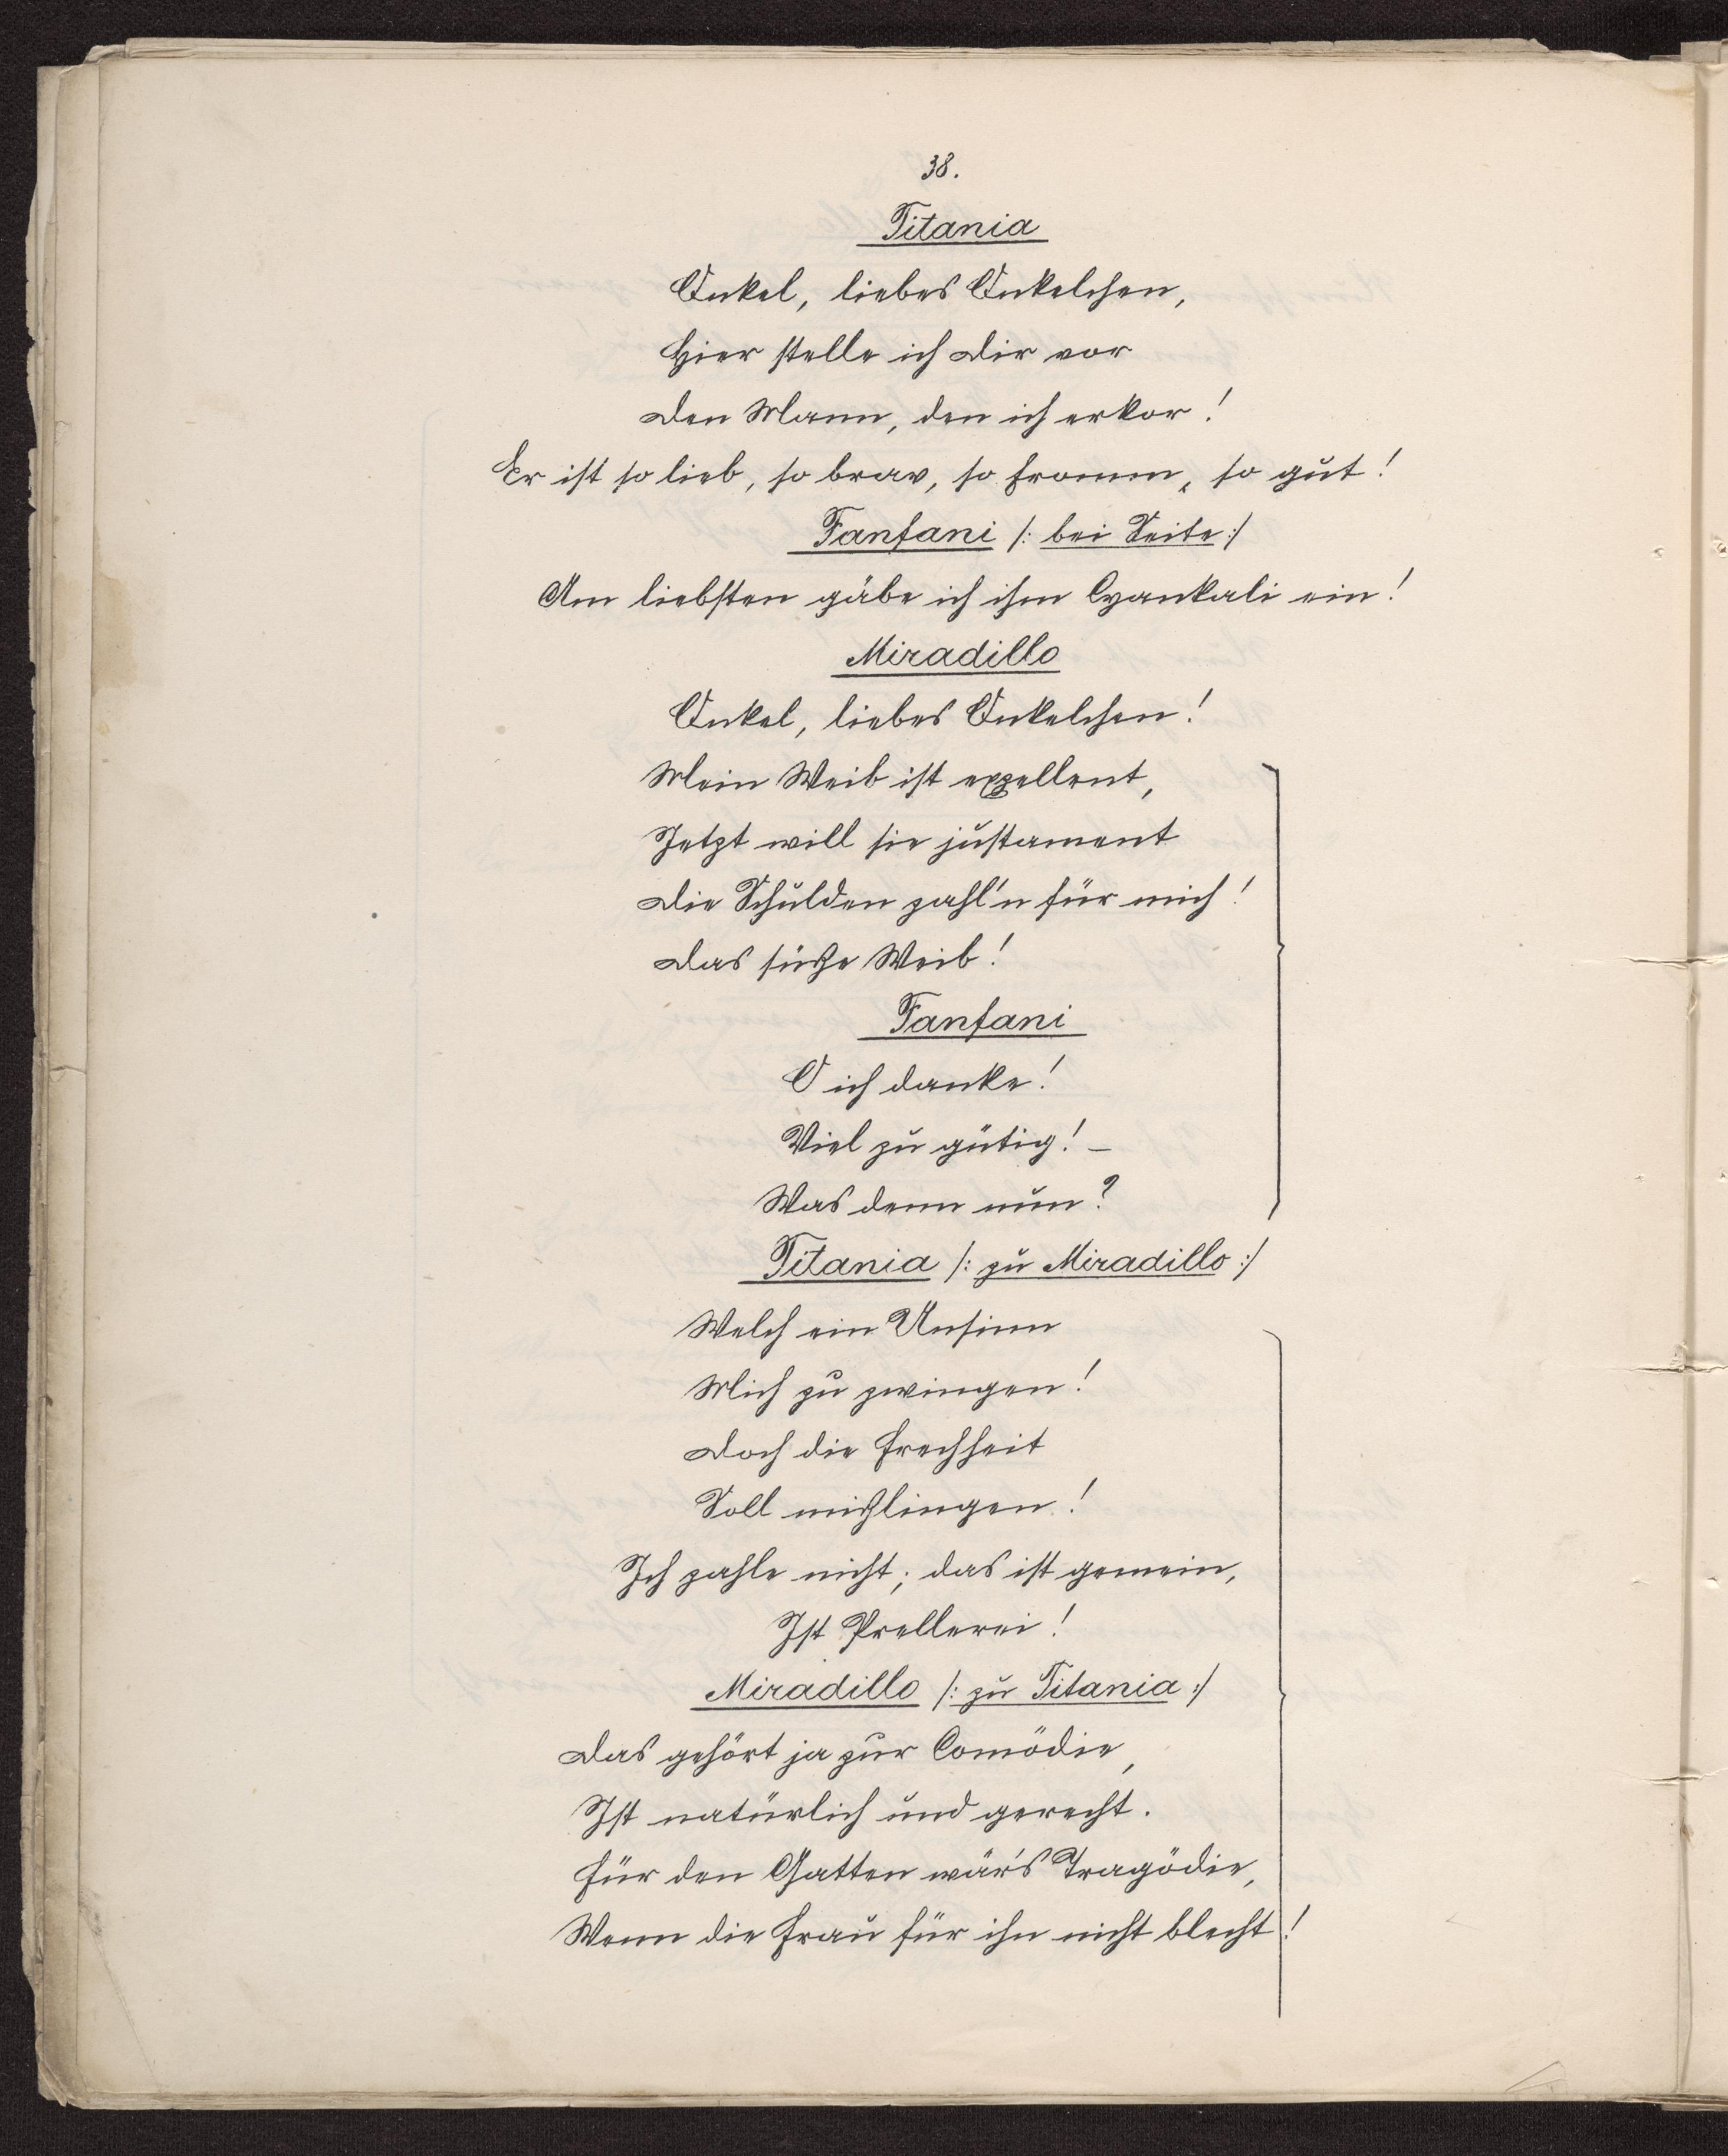 38.
Titania
Onkel, liebes Onkelchen,
Hier stelle ich dir vor
Den Mann, den ich erkor!
Er ist so lieb, so brav, so fromm, so gut!
Fanfani /: bei Seite :/
Am liebsten gäbe ich ihm Cyankali ein!
Miradillo
Onkel, liebes Onkelchen!
Mein Weib ist exzellent,
Jetzt will sie justament
Die Schulden zahl'n für mich!
Das süße Weib!
Fanfani
O ich danke!
Viel zu gütig! –
Was denn nun?
Titania /: zu Miradillo :/
Welch ein Unsinn
Mich zu zwingen!
Doch die Frechheit
Soll mißlingen!
Ich zahle nicht; das ist gemein,
Ist Prellerei!
Miradillo /: zu Titania :/
Das gehört ja zur Comödie,
Ist natürlich und gerecht.
Für den Gatten wär's Tragödie,
Wenn die Frau für ihn nicht blecht!